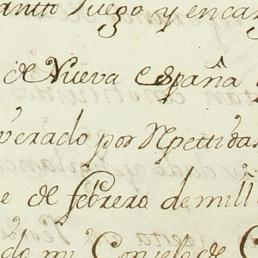 Ruego y encar
de Nueva España
perado por Repettidas
e de febrero de mill
do mi Consejo de